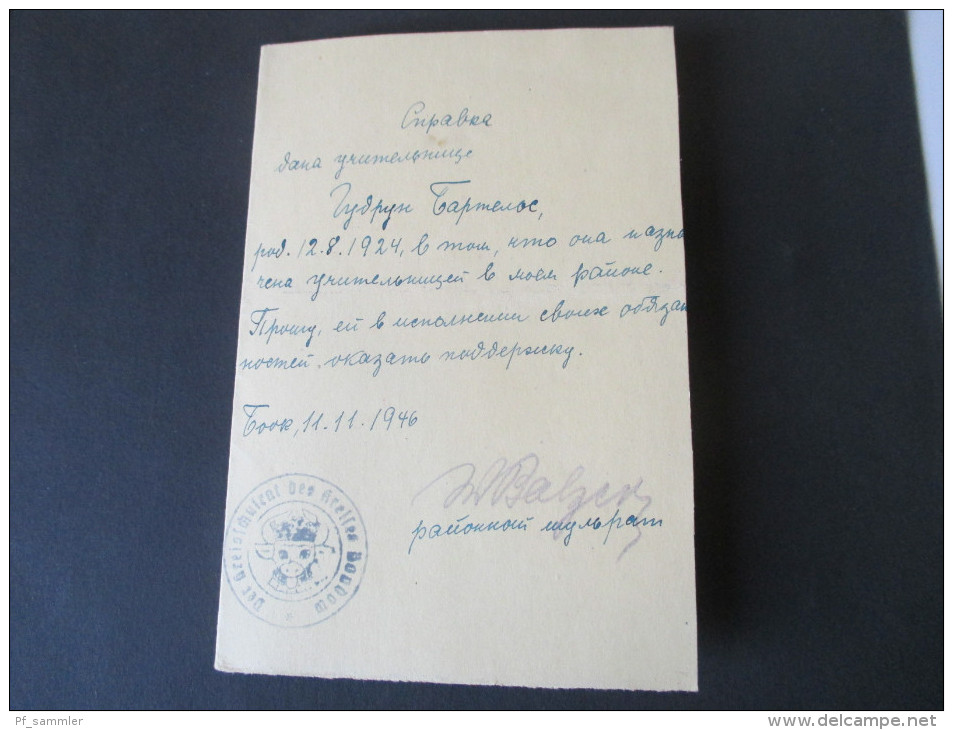 Справка
дана учительнице
Гудрун Бартелос,
род. 12.8.1924, в том, что она назна
чена учительницей в моем районе.
Прошу, ей в исполнении своих обязан
ностей, оказать поддержку.
Боок, 11.11.1946
W Balzer
районной шульрат
Der Kreisschulrat des Kreises
Pf_sammler
www.delcampe.net